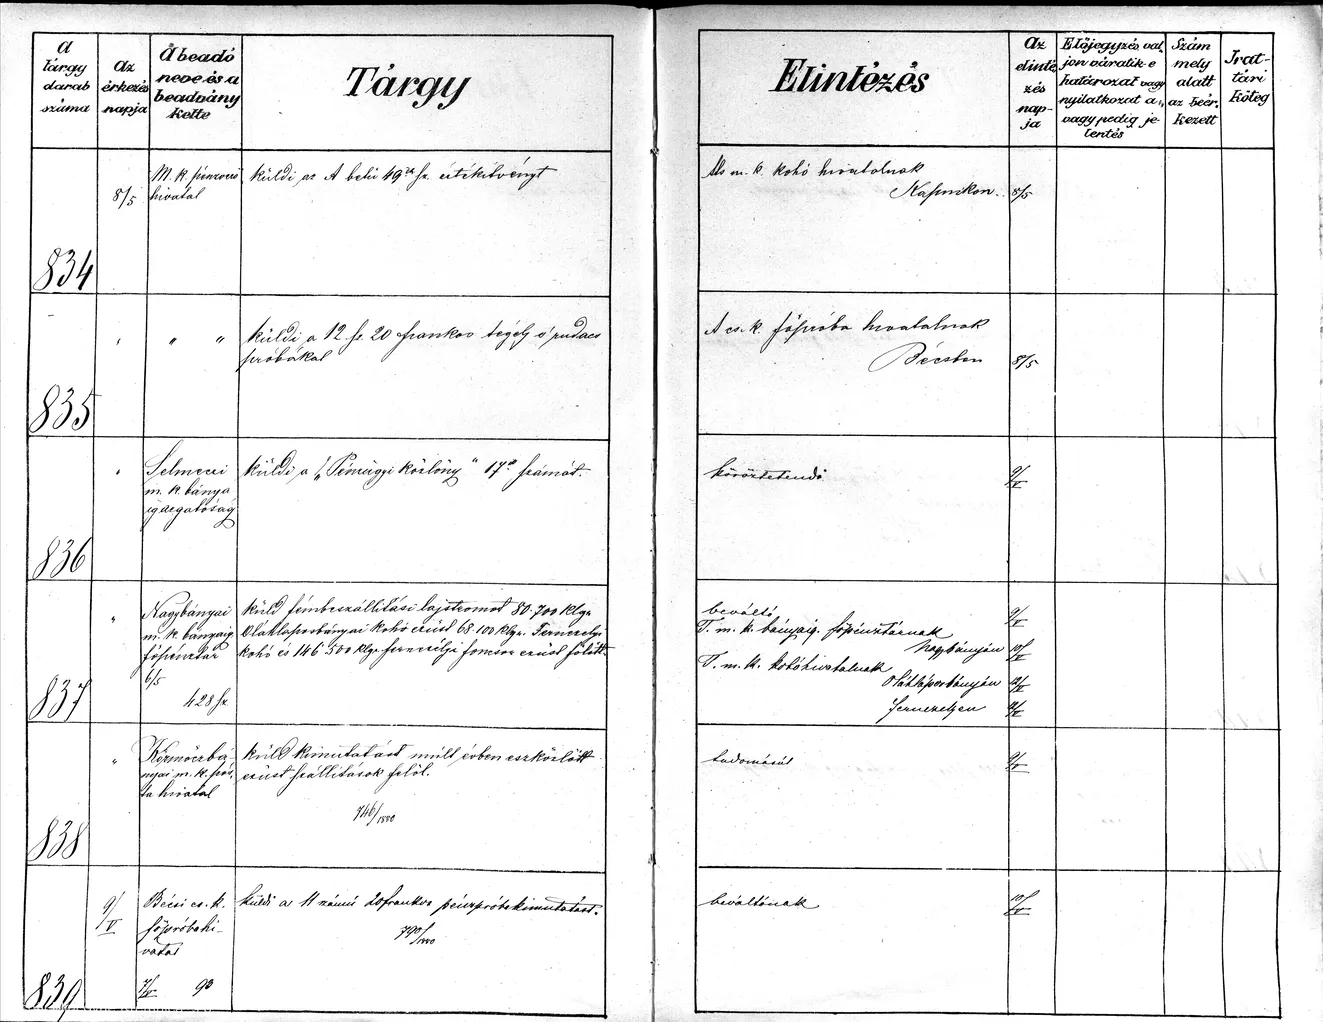 A
tárgy
darab
száma
Az
érkezés
napja
A beadó
neve és a
beadvány
kelte
Tárgy
Elintézés
Az
elinté
zés
nap-
ja
Előjegyzés val
jon váratik-e
határozat vagy
nyilatkozat a,,
vagy pedig je-
lentés
Szám
mely
alatt
az beér.
kezett
Irat-
tári
köteg
834
8/5
M. k. pénzverő
hivatal
küldi az A betü 49 sz. értékitvényt
m. k. kohó hivatalnak
Kapnikon.
8/5
835
" "
küldi a 12. sz. 20 frankos tégely s rudacs
próbákat
A cs. k. főpróba hivatalnak
Bécsben
8/5
836
"
Selmeczi
m. k. bánya
igazgatóság
küldi a „Pénzügyi közlöny" 17. számát.
köröztetendő
9/V
837
"
Nagybányai
m. k. bányaig
főpénztár
6/5
428 sz
küld fémbeszállitási lajstromot 80.700 klgr
Oláhláposbányai kohó ezüst 68.100 klgr. Fernezelyi
kohó és 146.300 klgr fernezelyi foncsor ezüst fölött.
beváltó
9/V
T. m. k. bányaig. főpénztárnak
Nagybányán
10/V
T. m. k. kohóhivatalnak
Oláhláposbányán
12/V
Fernezelyen
12/V
838
"
Körmöczbá-
nyai m. k. pós
ta hivatal
küld kimutatást mult évben eszközlött
ezüst szállitások felöl.
746/1880
tudomásul
9/V
839
9/V
Bécsi cs. k.
főpróbahi-
vatal
7/V 93
küldi a 11 számú 20frankos pénzpróbakimutatást.
790/1880
beváltónak
10/V